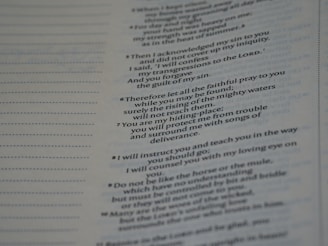 3 When I kept silent,
my bones wasted away
through my groaning all day long.
4 For day and night
your hand was heavy on me;
my strength was sapped
as in the heat of summer.
5 Then I acknowledged my sin to you
and did not cover up my iniquity.
I said, "I will confess
my transgressions to the LORD."
And you forgave
the guilt of my sin.
6 Therefore let all the faithful pray to you
while you may be found;
surely the rising of the mighty waters
will not reach them.
7 You are my hiding place;
you will protect me from trouble
and surround me with songs of
deliverance.
8 I will instruct you and teach you in the way
you should go;
I will counsel you with my loving eye on
you.
9 Do not be like the horse or the mule,
which have no understanding
but must be controlled by bit and bridle
or they will not come to you.
10 Many are the woes of the wicked,
but the LORD's unfailing love
surrounds the one who trusts in him.
11 Rejoice in the LORD and be glad, you